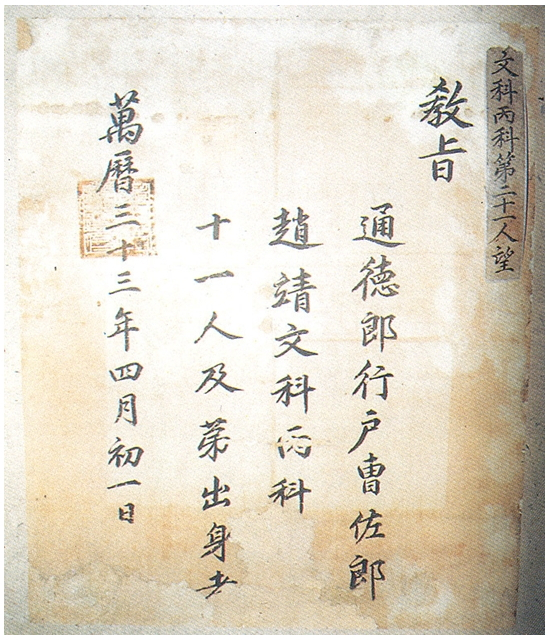 文科丙科第二十一人望
教旨
通德郎行戶曹佐郎
趙靖文科丙科
十一人及第出身者
萬曆三十三年四月初一日